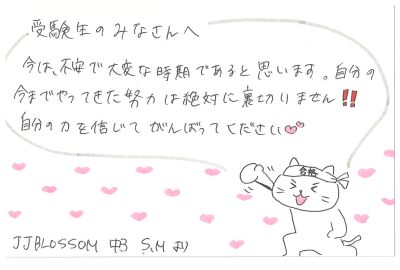 受験生のみなさんへ
今は、不安で大変な時期であると思います。自分の
今までやってきた努力は絶対に裏切りません!!
自分の力を信じてがんばってください
合格
JJBLOSSOM 中3 S.Mより